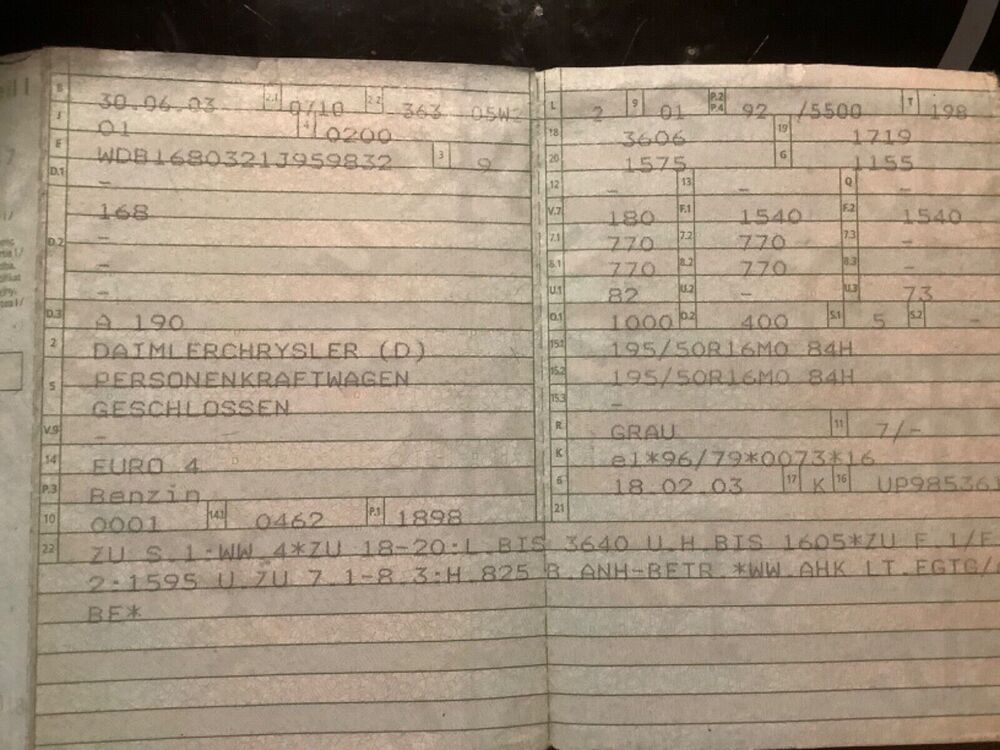 B 30.06.03 2.1 0/10 2.2 363 05W2
J 01 4 0200
E WDB1680321J959832 3 9
D.1 –
168
D.2 –
–
–
D.3 A 190
2 DAIMLERCHRYSLER (D)
5 PERSONENKRAFTWAGEN
GESCHLOSSEN
V.9 –
14 EURO 4
P.3 Benzin
10 0001 14.1 0462 P.1 1898
L 2 9 01 P.2 P.4 92 /5500 T 198
18 3606 19 1719
20 1575 G 1155
12 – 13 – Q –
V.7 180 F.1 1540 F.2 1540
7.1 770 7.2 770 7.3 –
8.1 770 8.2 770 8.3 –
U.1 82 U.2 – U.3 73
O.1 1000 O.2 400 S.1 5 S.2 –
15.1 195/50R16MO 84H
15.2 195/50R16MO 84H
15.3 –
R GRAU 11 7/–
K e1*96/79*0073*16
6 18.02.03 17 K 16 UP985363
21
22 ZU S.1:WW 4*ZU 18-20:L.BIS 3640 U.H.BIS 1605*ZU F.1/F.
2:1595 U.ZU 7.1-8.3:H.825 B.ANH-BETR.*WW.AHK LT.EGTG/
BE*